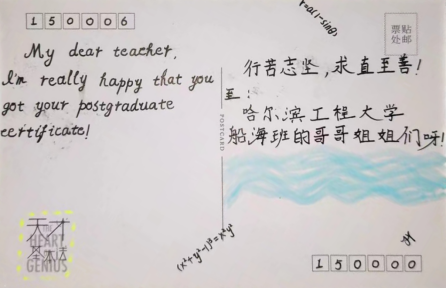 150006
My dear teacher,
I'm really happy that you
got your postgraduate
certificate!
天才
THE
HEART
基本法
GENIUS
r=a(1-sinθ)
贴邮
票处
行苦志坚,求直至善!
至:
哈尔滨工程大学
船海班的哥哥姐姐们呀!
POSTCARD
(x²+y²-1)³=x²y³
150000